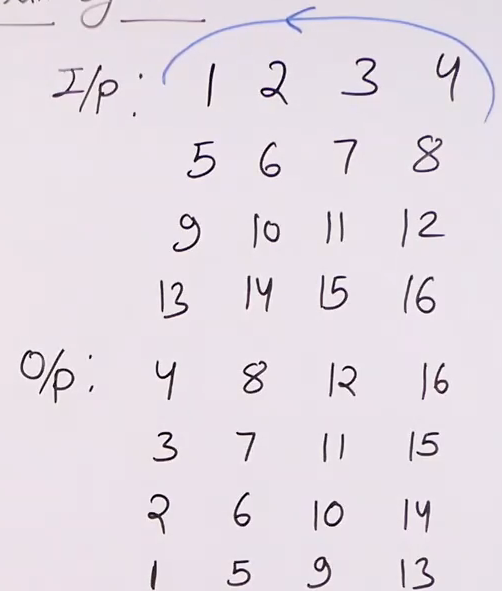 I/p: 1 2 3 4
5 6 7 8
9 10 11 12
13 14 15 16
O/p: 4 8 12 16
3 7 11 15
2 6 10 14
1 5 9 13